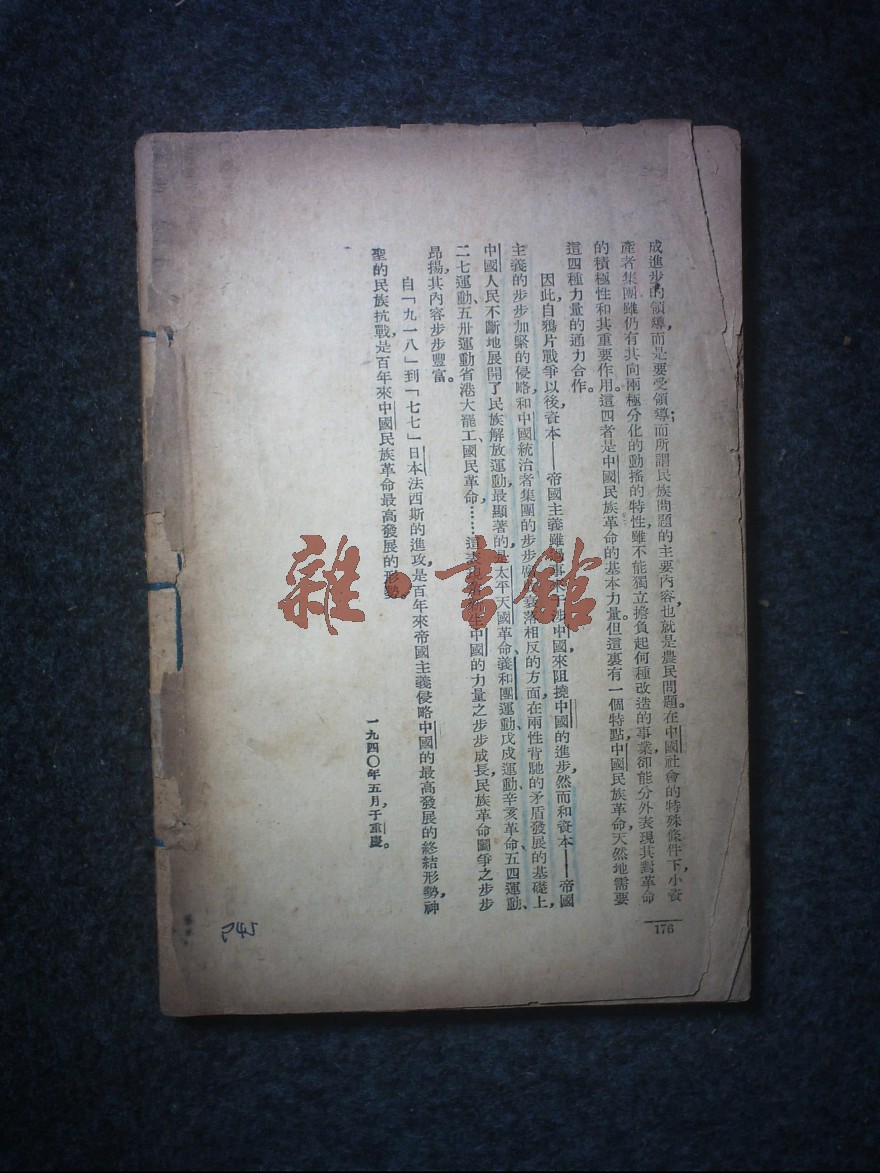 成進步的領導,而是要受領導;而所謂民族問題的主要內容,也就是農民問題。在中國社會的特殊條件下,小資
產者集團雖仍有其向兩極分化的動搖的特性,雖不能獨立擔負起何種改造的事業,卻能分外表現其對革命
的積極性和其重要作用。這四者是中國民族革命的基本力量。但這裏有一個特點,中國民族革命天然地需要
這四種力量的通力合作。
因此自鴉片戰爭以後,資本——帝國主義雖 涉中國來阻撓中國的進步,然而和資本——帝國
主義的步步加緊的侵略,和中國統治者集團的步步 衰落相反的方面,在兩性背馳的矛盾發展的基礎上,
中國人民不斷地展開了民族解放運動,最顯著的是太平天國革命、義和團運動、戊戌運動、辛亥革命、五四運動、
二七運動、五卅運動、省港大罷工、國民革命……這 生中國的力量之步步成長,民族革命鬭爭之步步
昂揚,其內容步步豐富。
自「九一八」到「七七」日本法西斯的進攻,是百年來帝國主義侵略中國的最高發展的終結形勢,神
聖的民族抗戰,是百年來中國民族革命最高發展的形勢。
一九四〇年五月,于重慶。
176
P45
雜·書館